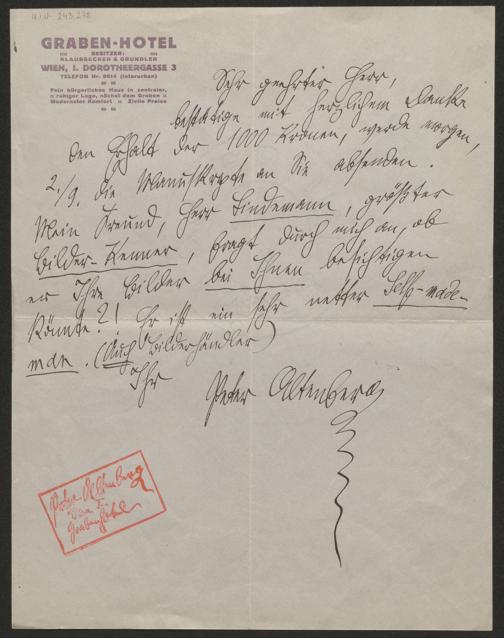 H.I.N. 243.278
GRABEN-HOTEL
BESITZER:
KLAUSSECKER & GRUNDLER
WIEN, I. DOROTHEERGASSE 3
TELEFON Nr. 9614 (Interurban)
Fein bürgerliches Haus in zentraler,
ruhiger Lage, nächst dem Graben
Modernster Komfort Zivile Preise
Sehr geehrter Herr,
bestätige mit herzlichem Danke
den Erhalt der 1000 Kronen, werde morgen,
2./9. die Manuskripte an Sie absenden.
Mein Freund, Herr Lindemann, größter
Bilder-Kenner, fragt durch mich an, ob
er Ihre Bilder bei Ihnen besichtigen
könnte?! Er ist ein sehr netter Self-made-
man. (Auch Bilderhändler)
Ihr
Peter Altenberg
Peter Altenberg
Wien I.
Grabenhotel